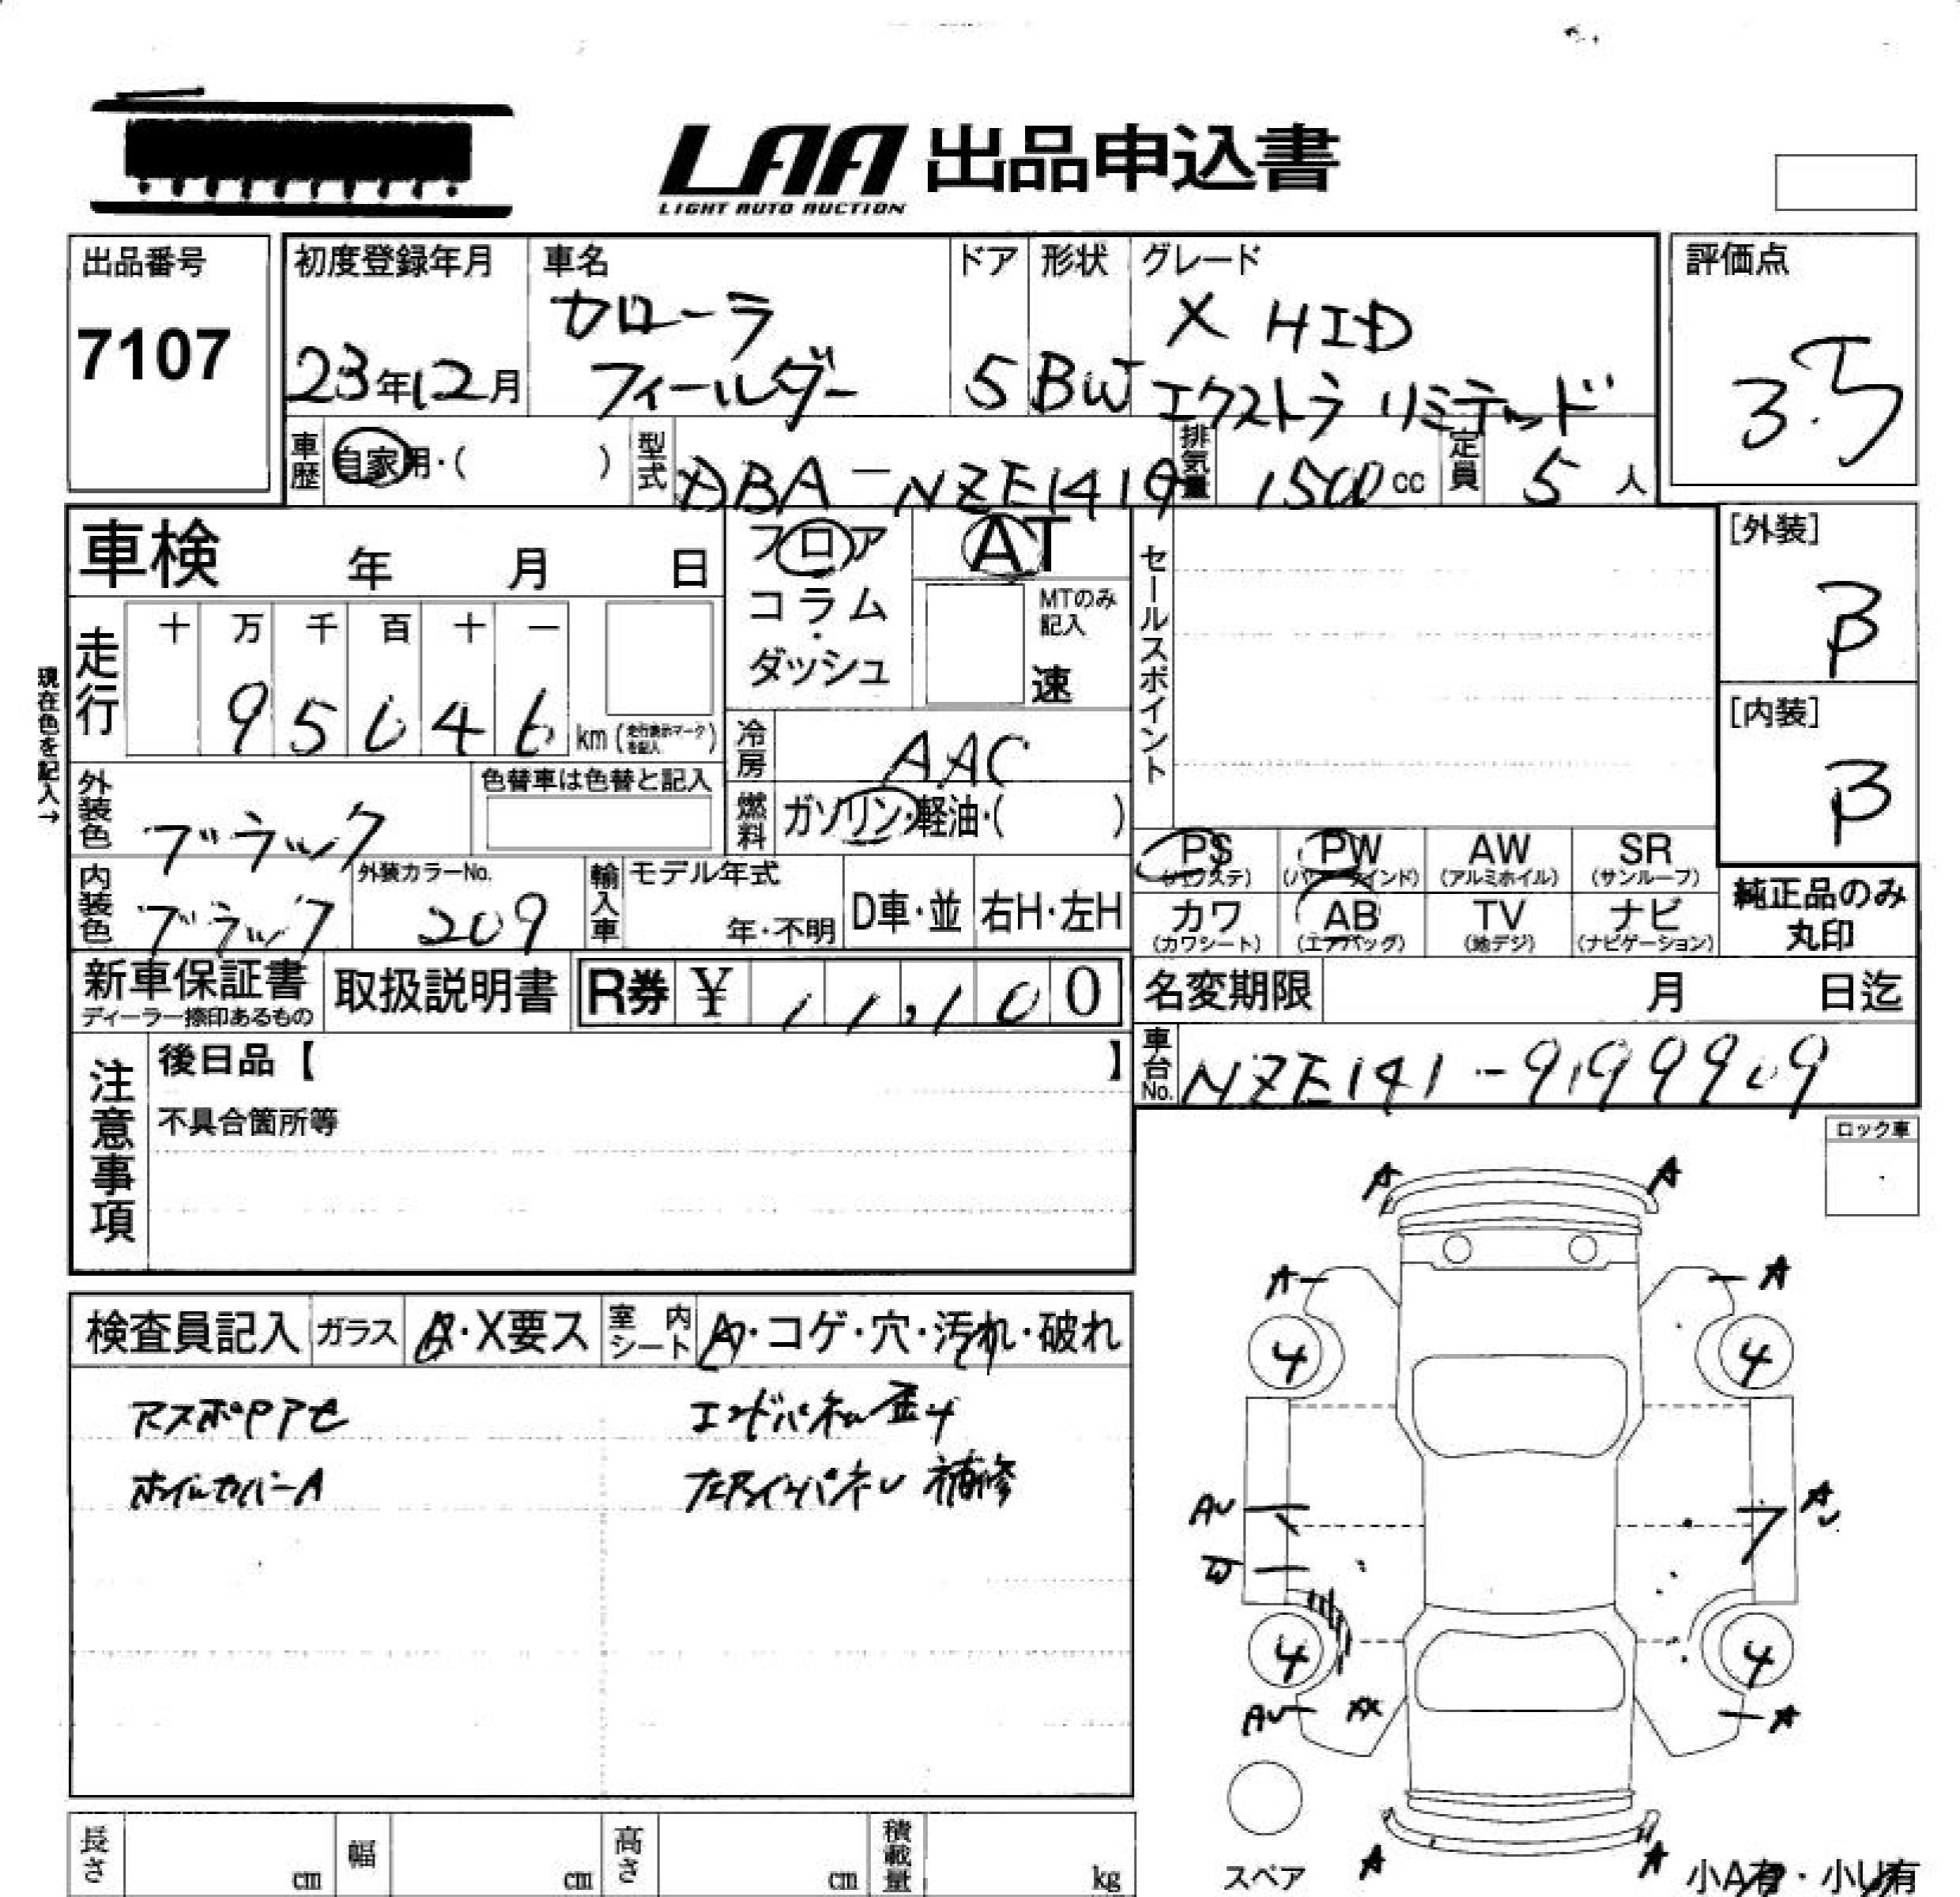 LAA 出品申込書
LIGHT AUTO AUCTION
出品番号
7107
初度登録年月
23年12月
車名
カローラ
フィールダー
ドア
5
形状
BW
グレード
X HID
エクストラ リミテッド
評価点
3.5
車歴 自家用・( )
型式 DBA-NZE141G
排気量 1500 cc
定員 5 人
車検 年 月 日
フロア
コラム
・
ダッシュ
AT
MTのみ
記入
速
セールスポイント
[外装]
B
[内装]
B
現在色を記入→
走行
十 万 千 百 十 一
9 5 0 4 6 km (走行表示マークを記入)
冷房 AAC
燃料 ガソリン・軽油・( )
外装色 ブラック
色替車は色替と記入
内装色 ブラック
外装カラーNo.
209
輸入車
モデル年式
年・不明
D車・並
右H・左H
PS (パワステ)
PW (パワーウインド)
AW (アルミホイル)
SR (サンルーフ)
カワ (カワシート)
AB (エアバッグ)
TV (地デジ)
ナビ (ナビゲーション)
純正品のみ
丸印
新車保証書
ディーラー捺印あるもの
取扱説明書
R券 ¥ 11,100
名変期限 月 日迄
車台No. NZE141-9199909
注意事項
後日品【 】
不具合箇所等
ロック車
検査員記入
ガラス A・X要ス
室内シート A・コゲ・穴・汚れ・破れ
ホイルカバーA
エンドパネル歪み
補修
A A
A A
4 4
AU
W
4 4
AU
A
A A
スペア
小A有・小U有
長さ cm
幅 cm
高さ cm
積載量 kg